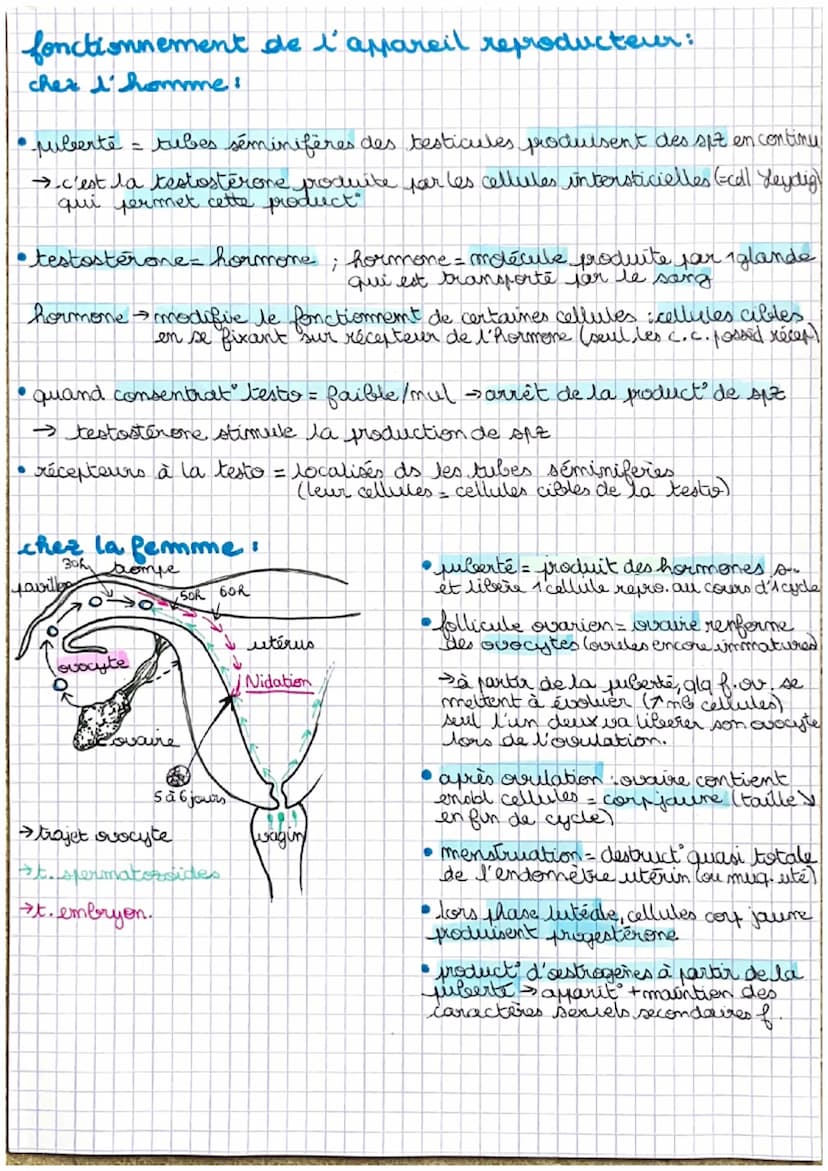 fonctionnement de l'appareil reproducteur :
chez l'homme :
• puberté = tubes séminifères des testicules produisent des spz en continu
→ c'est la testostérone produite par les cellules intersticielles (=cell Leydig)
qui permet cette product°
• testostérone = hormone ; hormone = molécule produite par 1 glande
qui est transporté par le sang
hormone → modifie le fonctionnemt de certaines cellules : cellules cibles
en se fixant sur récepteur de l'hormone (seul les c.c. possèd récep)
• quand consentrat° testo = faible/nul → arrêt de la product° de spz
→ testostérone stimule la production de spz
• récepteurs à la testo = localisés ds les tubes séminiferies
(leur cellules = cellules cibles de la testo)
chez la femme :
30h
trompe
pavillon
50h
60h
utérus
ovocyte
Nidation
ovaire
5 à 6 jours
vagin
→ trajet ovocyte
→ t. spermatozoïdes
→ t. embryon.
• puberté = produit des hormones s..
et libère 1 cellule repro. au cours d'1 cycle
• follicule ovarien = ovaire renferme
des ovocytes (ovules encore immatures)
→ à partir de la puberté, qlq f. ov. se
mettent à évoluer (↗ nb cellules)
seul l'un deux va liberer son ovocyte
lors de l'ovulation.
• après ovulation : ovaire contient
ensbl cellules = corp jaune (taille ↘
en fin de cycle)
• menstruation = destruct° quasi totale
de l'endomètre utérin (ou muq. uté)
• lors phase lutéale, cellules corp jaune
produisent progestérone
• product° d'œstrogènes à partir de la
puberté → apparit° + maintien des
caractères sexuels secondaires f.